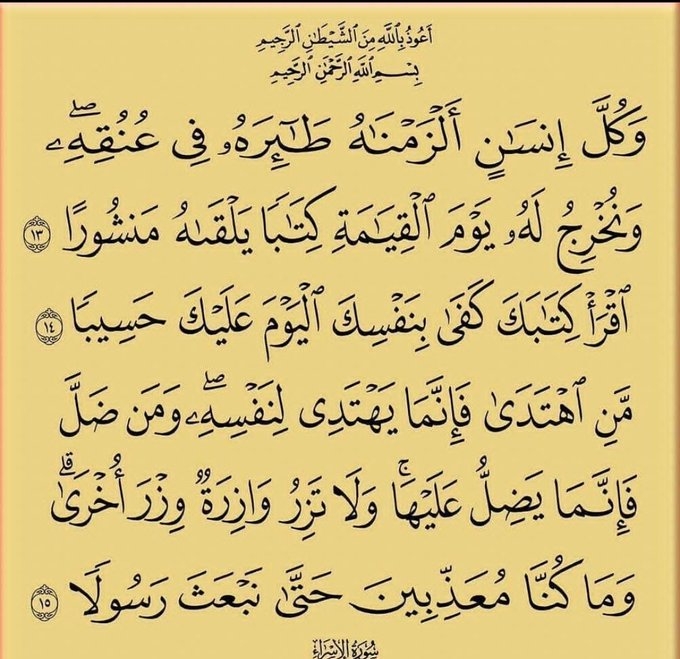 أَعُوذُ بِٱللَّهِ مِنَ ٱلشَّيْطَٰنِ ٱلرَّجِيمِ
بِسْمِ ٱللَّهِ ٱلرَّحْمَٰنِ ٱلرَّحِيمِ
وَكُلَّ إِنسَٰنٍ أَلْزَمْنَٰهُ طَٰٓئِرَهُۥ فِى عُنُقِهِۦۖ
وَنُخْرِجُ لَهُۥ يَوْمَ ٱلْقِيَٰمَةِ كِتَٰبًا يَلْقَىٰهُ مَنشُورًا ١٣
ٱقْرَأْ كِتَٰبَكَ كَفَىٰ بِنَفْسِكَ ٱلْيَوْمَ عَلَيْكَ حَسِيبًا ١٤
مَّنِ ٱهْتَدَىٰ فَإِنَّمَا يَهْتَدِى لِنَفْسِهِۦۖ وَمَن ضَلَّ
فَإِنَّمَا يَضِلُّ عَلَيْهَاۚ وَلَا تَزِرُ وَازِرَةٌ وِزْرَ أُخْرَىٰۗ
وَمَا كُنَّا مُعَذِّبِينَ حَتَّىٰ نَبْعَثَ رَسُولًا ١٥
سُورَةُ الإِسْرَاءِ